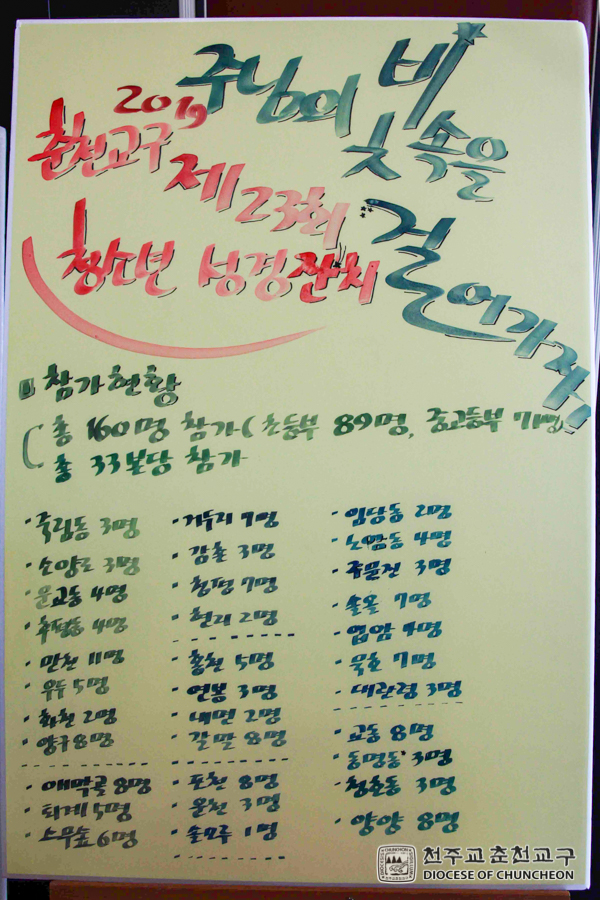 주님의 빛 속을 걸어가자!
2019
춘천교구
제23회
청소년 성경잔치
참가현황
총 160명 참가(초등부 89명, 중고등부 71명)
총 33본당 참가
· 죽림동 3명
· 소양로 3명
· 운교동 4명
· 후평동 4명
· 만천 11명
· 우두 5명
· 화천 2명
· 양구 8명
· 애막골 8명
· 퇴계 5명
· 스무숲 6명
· 거두리 7명
· 감촌 3명
· 청평 7명
· 현리 2명
· 홍천 5명
· 연봉 3명
· 내면 2명
· 갈말 8명
· 포천 8명
· 운천 3명
· 솔모루 1명
· 임당동 2명
· 노암동 4명
· 주문진 3명
· 솔올 7명
· 입암 4명
· 묵호 7명
· 대관령 3명
· 교동 8명
· 동명동 3명
· 청호동 3명
· 양양 8명
천주교 춘천교구
DIOCESE OF CHUNCHEON